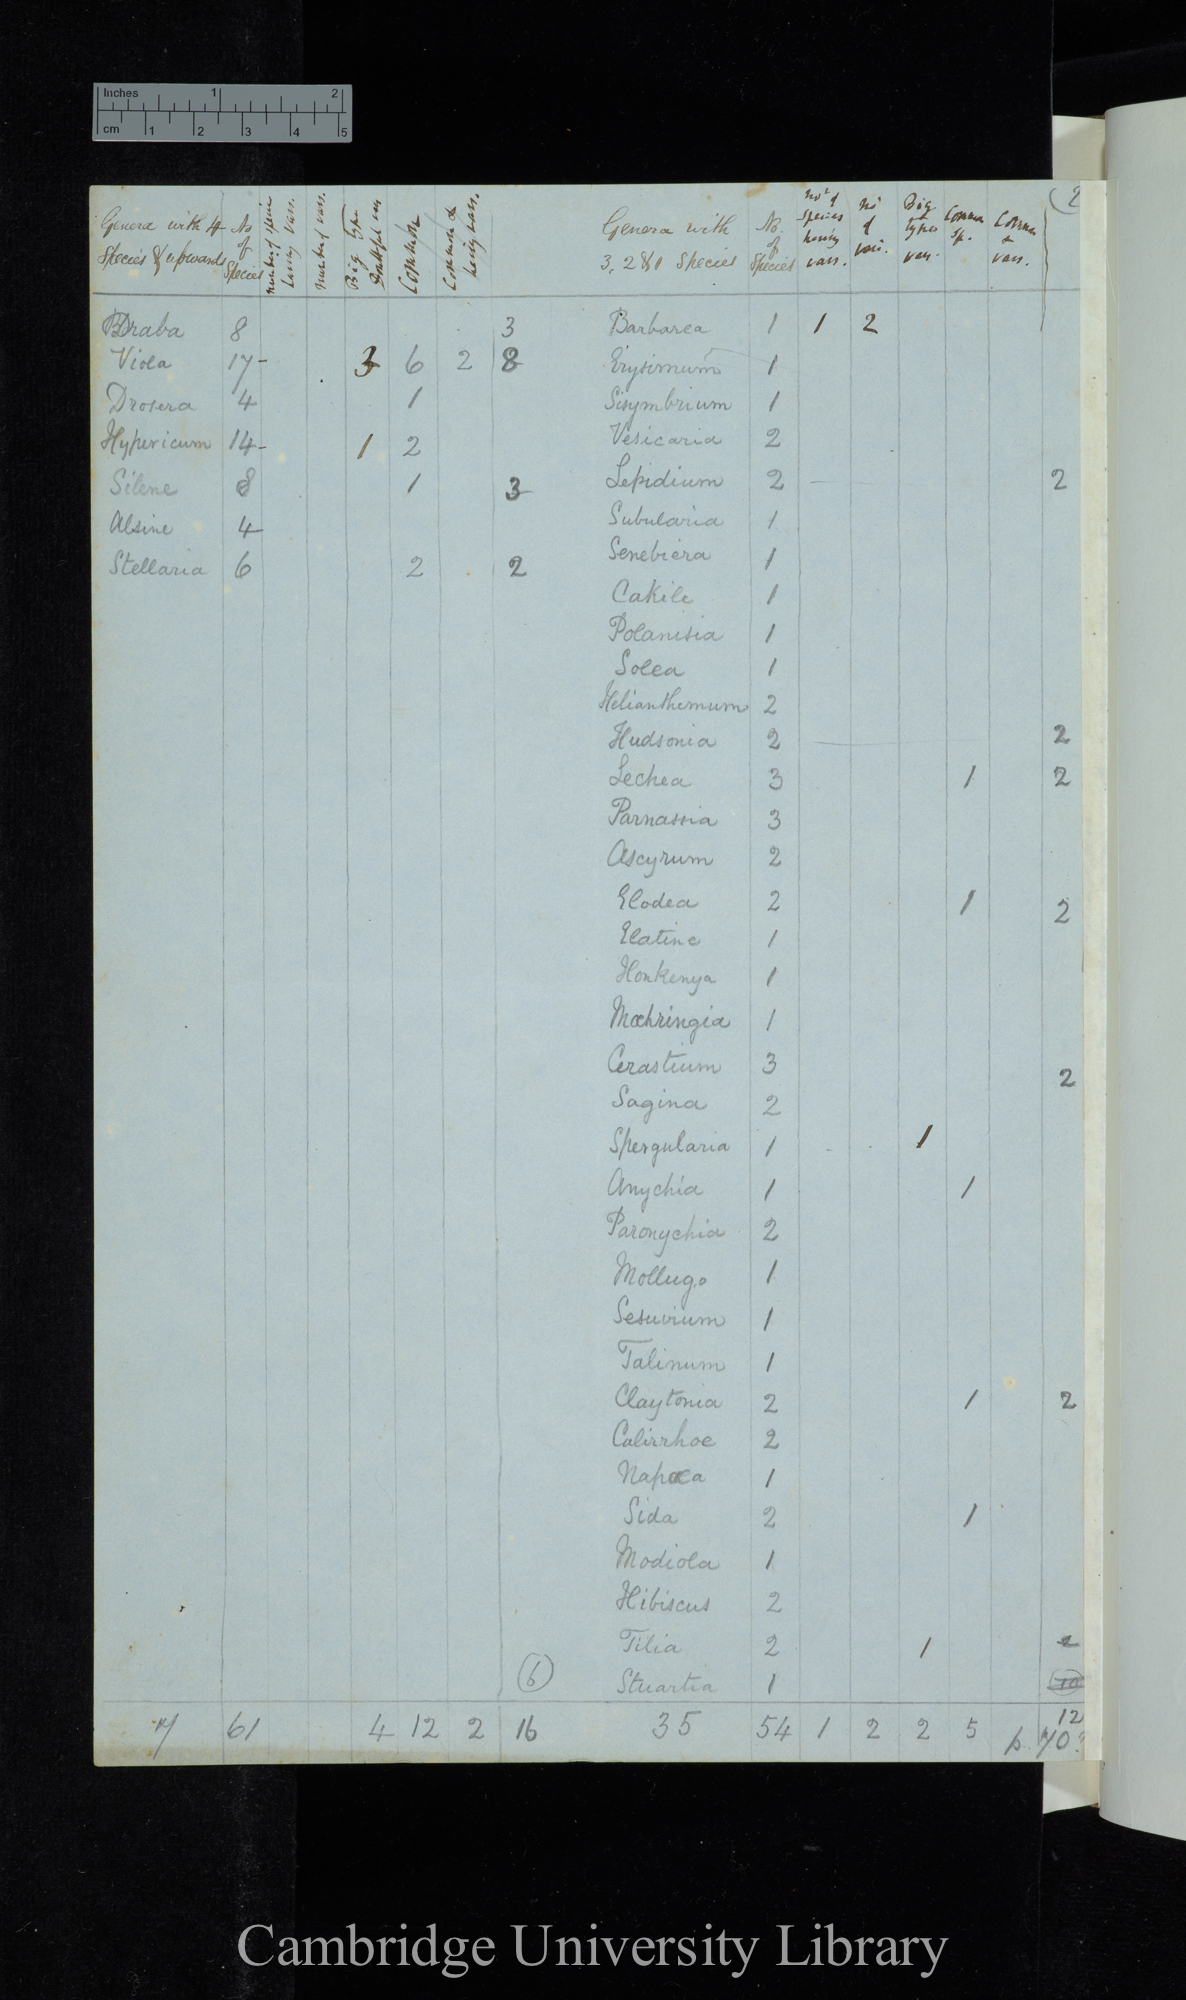 Inches 1 2
cm 1 2 3 4 5
(2
Genera with 4 Species & upwards
No. of Species
number of species having vars.
number of vars.
Big Type
Common
Common & having vars.
Genera with 3, 2 & 1 Species
No. of Species
No of species having vars.
No of vars.
Big type var.
Common sp.
Common & vars.
Draba 8 3 Barbarea 1 1 2
Viola 17- 3 6 2 8 Erysimum 1
Drosera 4 1 Sisymbrium 1
Hypericum 14- 1 2 Vesicaria 2
Silene 8 1 3 Lepidium 2 2
Alsine 4 Subularia 1
Stellaria 6 2 2 Senebiera 1
Cakile 1
Polanisia 1
Solea 1
Helianthemum 2
Hudsonia 2 2
Lechea 3 1 2
Parnassia 3
Ascyrum 2
Elodea 2 1 2
Elatine 1
Honkenya 1
Mœhringia 1
Cerastium 3 2
Sagina 2
Spergularia 1 1
Anychia 1 1
Paronychia 2
Mollugo 1
Sesuvium 1
Talinum 1
Claytonia 2 1 2
Calirrhoe 2
Napæa 1
Sida 2 1
Modiola 1
Hibiscus 2
Tilia 2 1 2
(6) Stuartia 1
7 61 4 12 2 16 35 54 1 2 2 5 12
p. 70?
Cambridge University Library